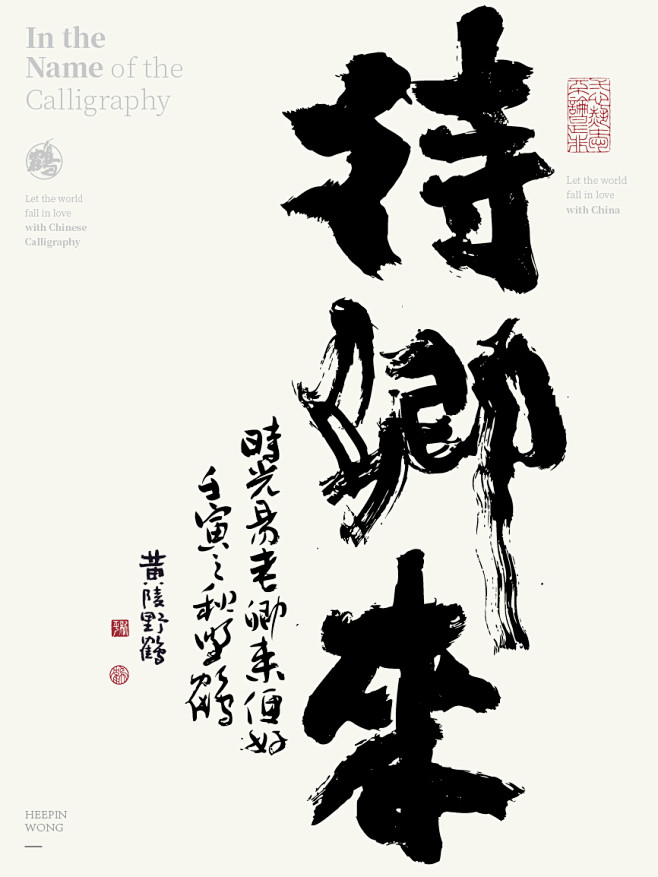 In the
Name of the
Calligraphy
鶴
Let the world
fall in love
with Chinese
Calligraphy
Let the world
fall in love
with China
待卿来
時光易老卿来便好
壬寅之秋野鶴
黄陵野鶴
HEEPIN
WONG